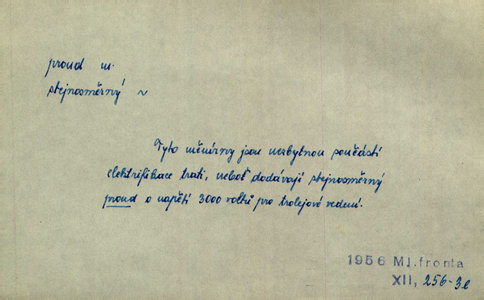 proud m.
stejnosměrný ~
Tyto měnírny jsou nezbytnou součástí
elektrifikace trati, neboť dodávají stejnosměrný
proud o napětí 3000 voltů pro trolejové vedení.
1956 Ml.fronta
XII, 256-3e